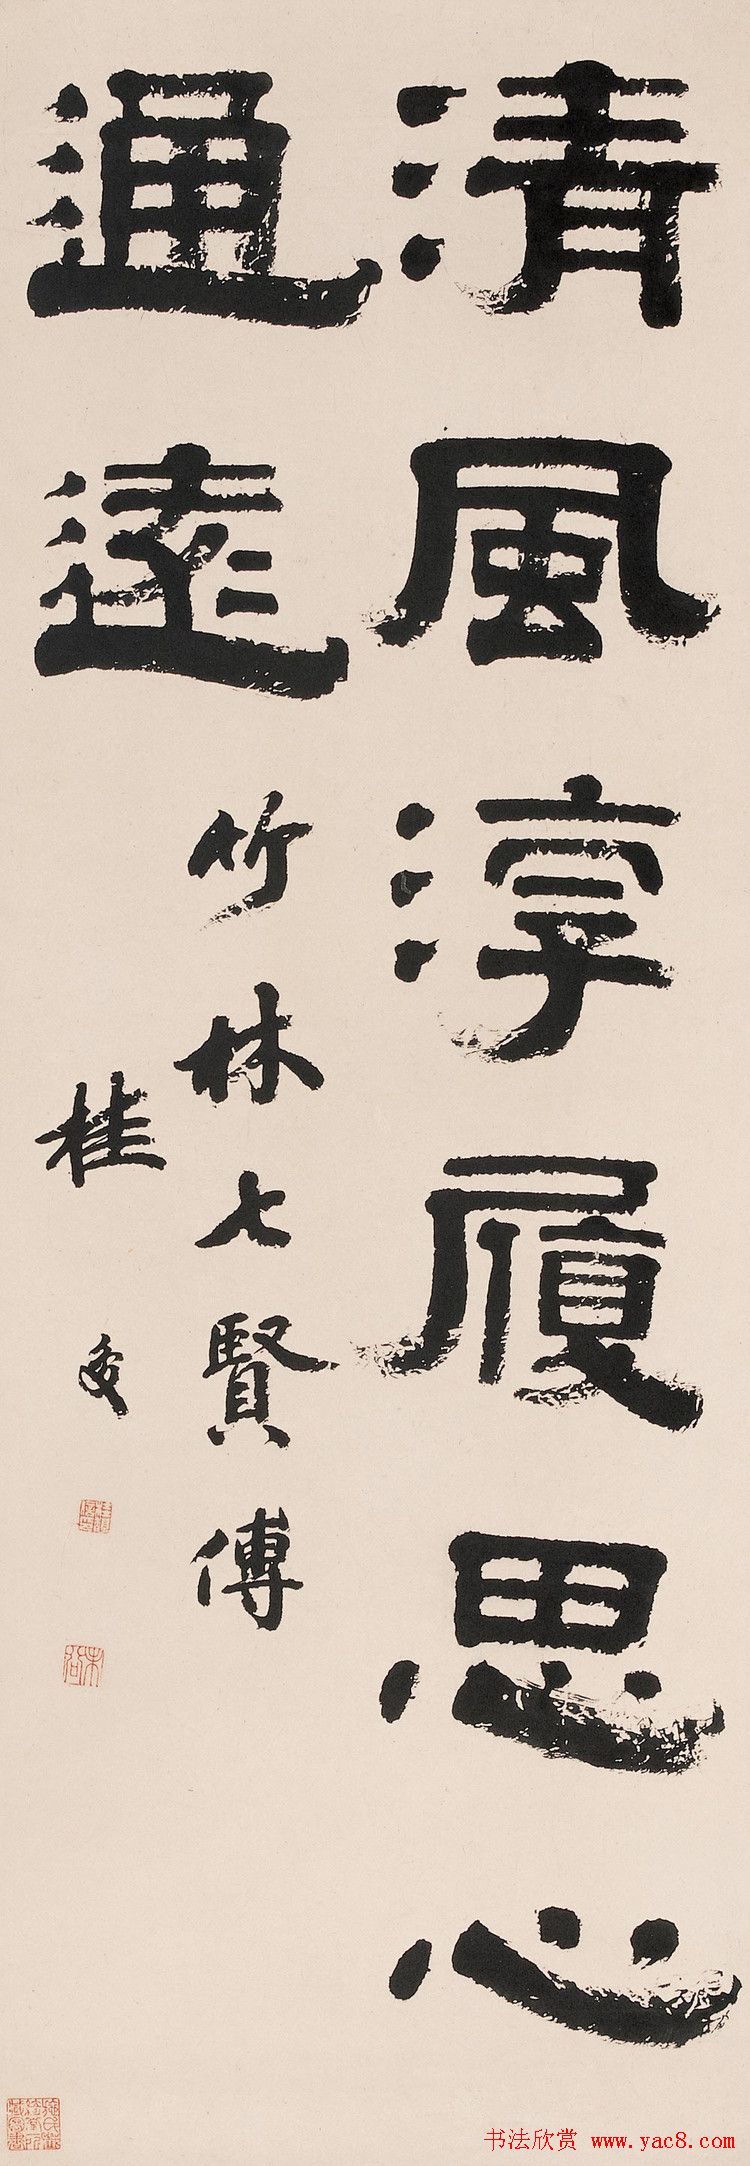 清風淳履思心
通遠
竹林七賢傳
桂馥
未谷
书法欣赏 www.yac8.com